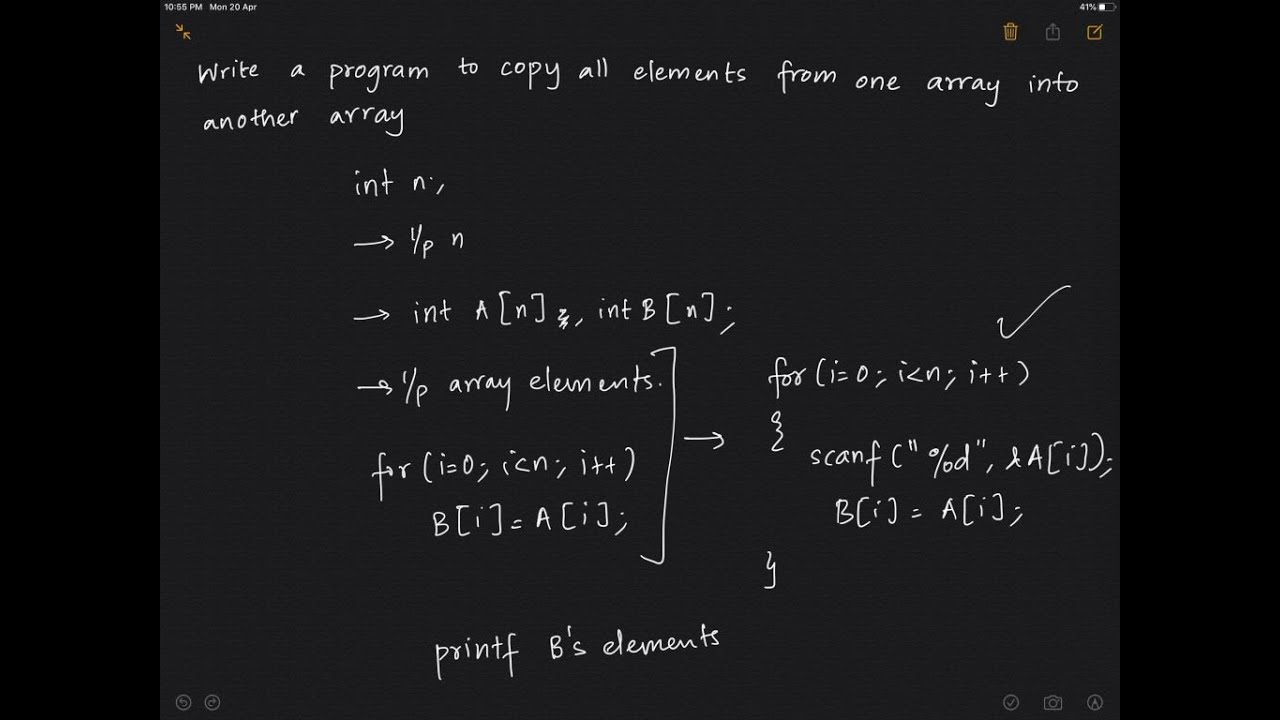 10:55 PM Mon 20 Apr
41%
Write a program to copy all elements from one array into
another array
int n;
→ I/p n
→ int A[n], int B[n];
→ I/p array elements.
for (i=0; i<n; i++)
B[i] = A[i];
→
for (i=0; i<n; i++)
{
scanf ("%d", &A[i]);
B[i] = A[i];
}
printf B's elements